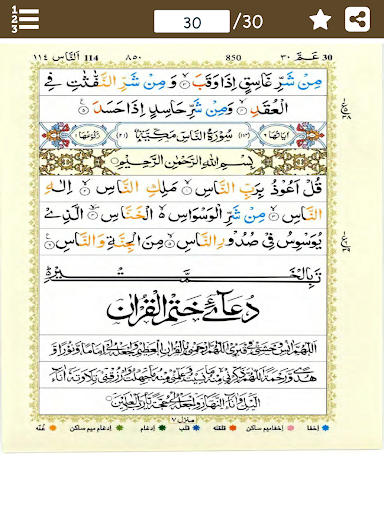 30 /30
٣٠ عَمَّ 30 850 ٨٥٠ 114 اَلنَّاس ١١٤
مِنْ شَرِّ غَاسِقٍ اِذَا وَقَبَ ۙ وَ مِنْ شَرِّ النَّفّٰثٰتِ فِی
الْعُقَدِ ۙ وَ مِنْ شَرِّ حَاسِدٍ اِذَا حَسَدَ
سُوْرَةُ النَّاسِ مَكِّيَّةٌ
بِسْمِ اللّٰهِ الرَّحْمٰنِ الرَّحِيْمِ
قُلْ اَعُوْذُ بِرَبِّ النَّاسِ ۙ مَلِكِ النَّاسِ ۙ اِلٰهِ
النَّاسِ ۙ مِنْ شَرِّ الْوَسْوَاسِ ۙ الْخَنَّاسِ ۙ الَّذِیْ
يُوَسْوِسُ فِیْ صُدُوْرِ النَّاسِ ۙ مِنَ الْجِنَّةِ وَ النَّاسِ
تَمَّتْ بِالْخَيْرِ
دعائے ختم القرآن
اَللّٰهُمَّ اٰنِسْ وَحْشَتِیْ فِیْ قَبْرِیْ اَللّٰهُمَّ ارْحَمْنِیْ بِالْقُرْاٰنِ الْعَظِيْمِ وَاجْعَلْهُ لِیْ اِمَامًا وَّ نُوْرًا وَّ
هُدًی وَّ رَحْمَةً اَللّٰهُمَّ ذَكِّرْنِیْ مِنْهُ مَا نَسِيْتُ وَعَلِّمْنِیْ مِنْهُ مَا جَهِلْتُ وَارْزُقْنِیْ تِلَاوَتَهٗ اٰنَآءَ
الَّيْلِ وَاٰنَآءَ النَّهَارِ وَاجْعَلْهُ لِیْ حُجَّةً يَّا رَبَّ الْعٰلَمِيْنَ
منزل ٧
اخفا اخفا میم ساکن قلقله قلب ادغام ادغام میم ساکن غنّه